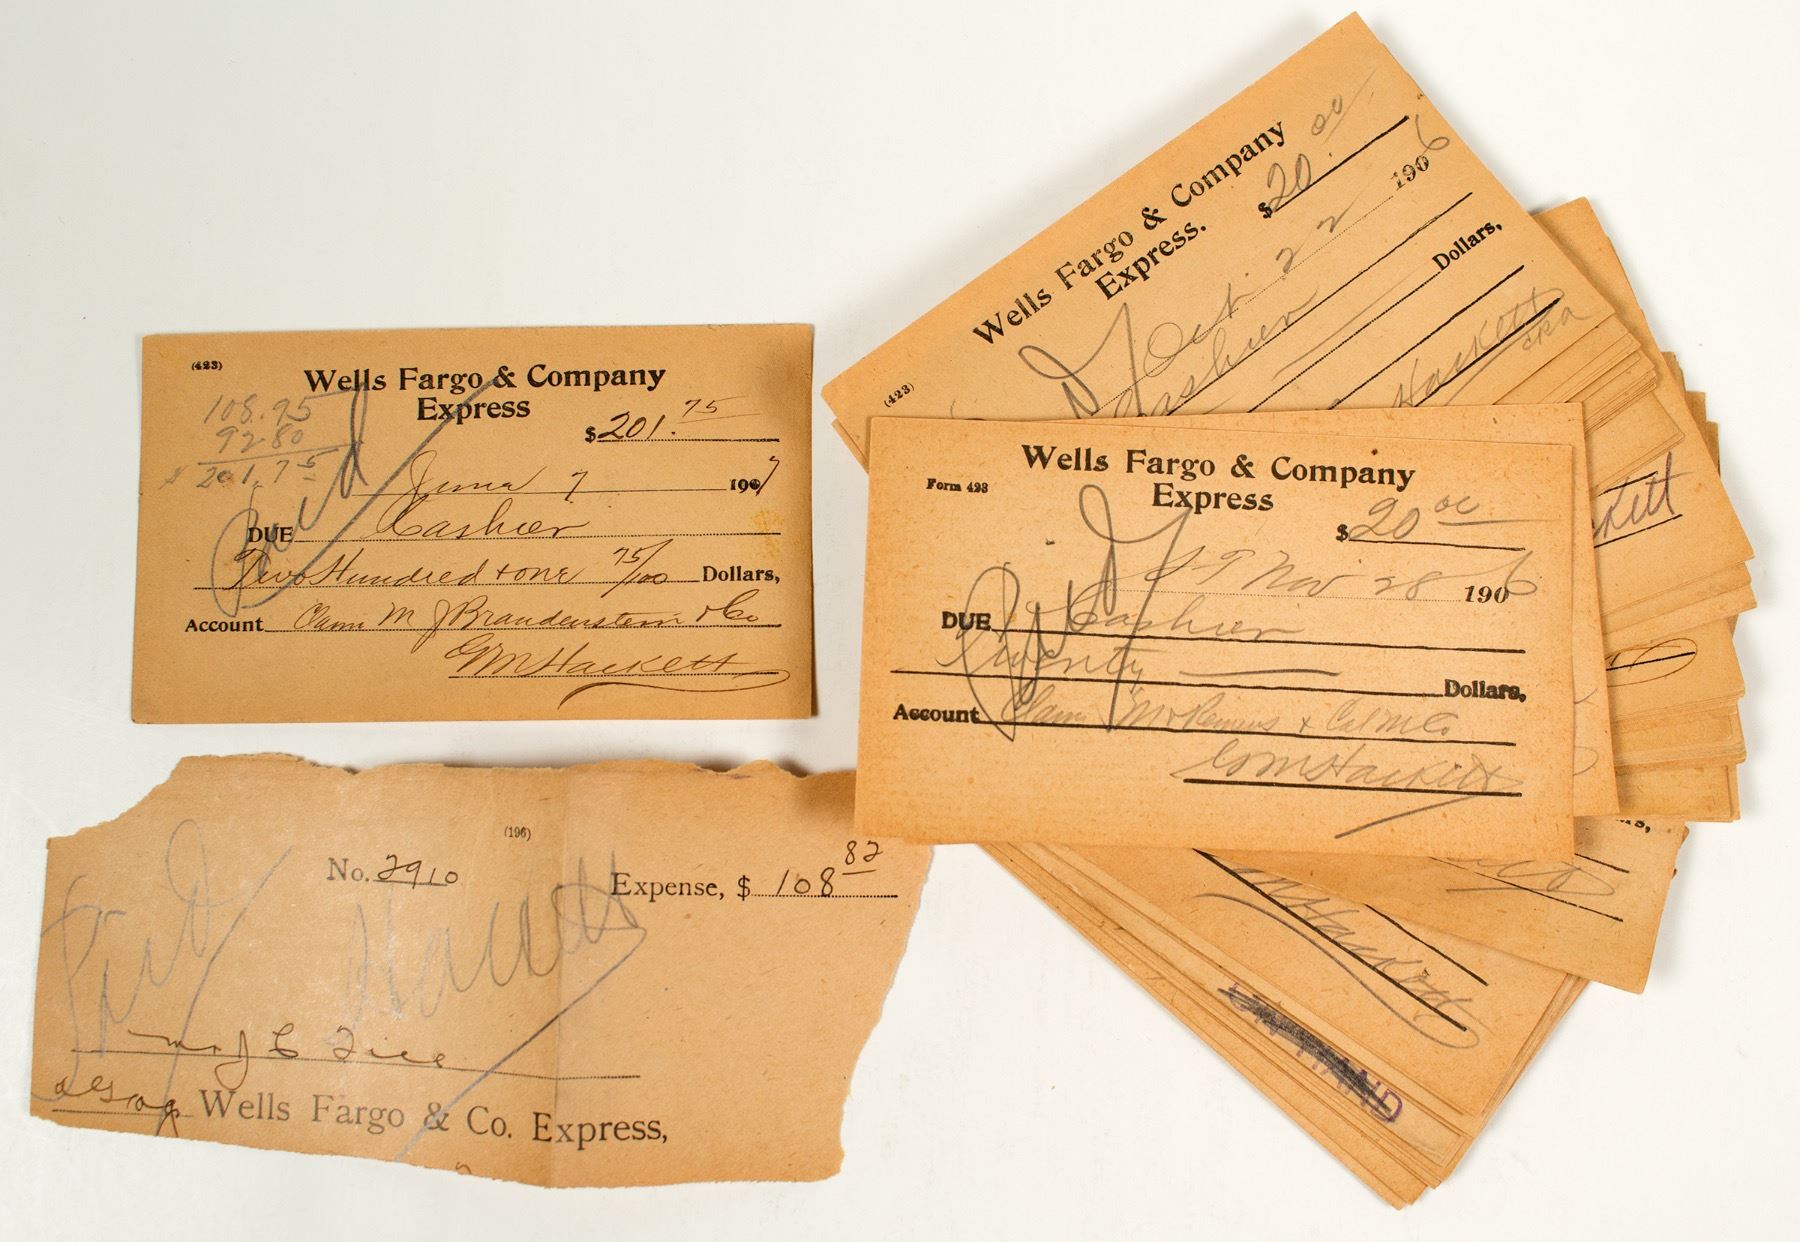 (423)
Wells Fargo & Company
Express
108.95
92 80
$ 201.75
$ 201.75
Paid
June 7 1907
DUE Cashier
Two Hundred + one 75/100 Dollars,
Account Claim M J Brandenstein & Co
GM Hackett
(196)
No. 2910
Expense, $ 108 82
Paid Hackett
Mr J C
Wells Fargo & Co. Express,
Wells Fargo & Company
Express.
$20.00
Oct 22 1906
Cashier
Dollars,
Hackett
(423)
Wells Fargo & Company
Express
Form 423
$20 00
Paid
S F Nov 28 1906
DUE Cashier
Twenty Dollars,
Account Claim
GM Hackett
Hackett
ON HAND